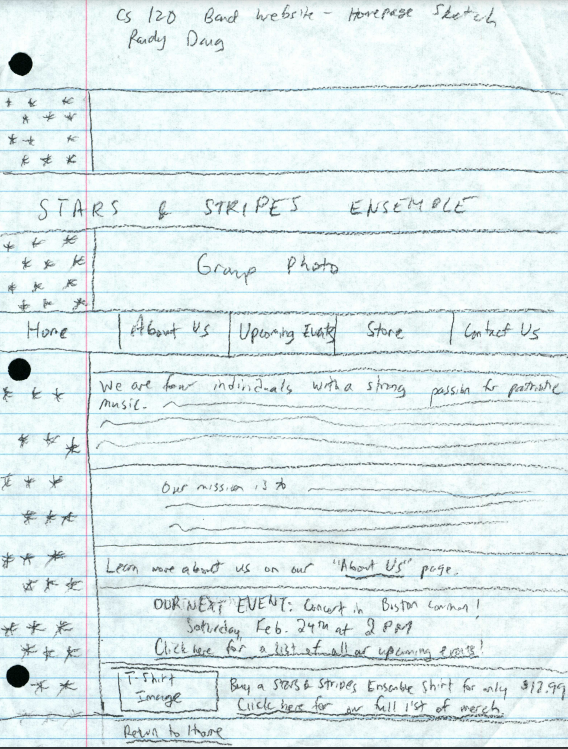 CS 120 Band Website - Homepage Sketch
Randy Doug
STARS & STRIPES ENSEMBLE
Group Photo
Home About Us Upcoming Events Store Contact Us
We are four individuals with a strong passion for patriotic
music.
Our mission is to
Learn more about us on our "About Us" page.
OUR NEXT EVENT: Concert in Boston Common!
Saturday, Feb. 24th at 2 PM
Click here for a list of all our upcoming events!
T-Shirt
Image
Buy a Stars & Stripes Ensemble shirt for only $12.99
Click here for our full list of merch.
Return to Home